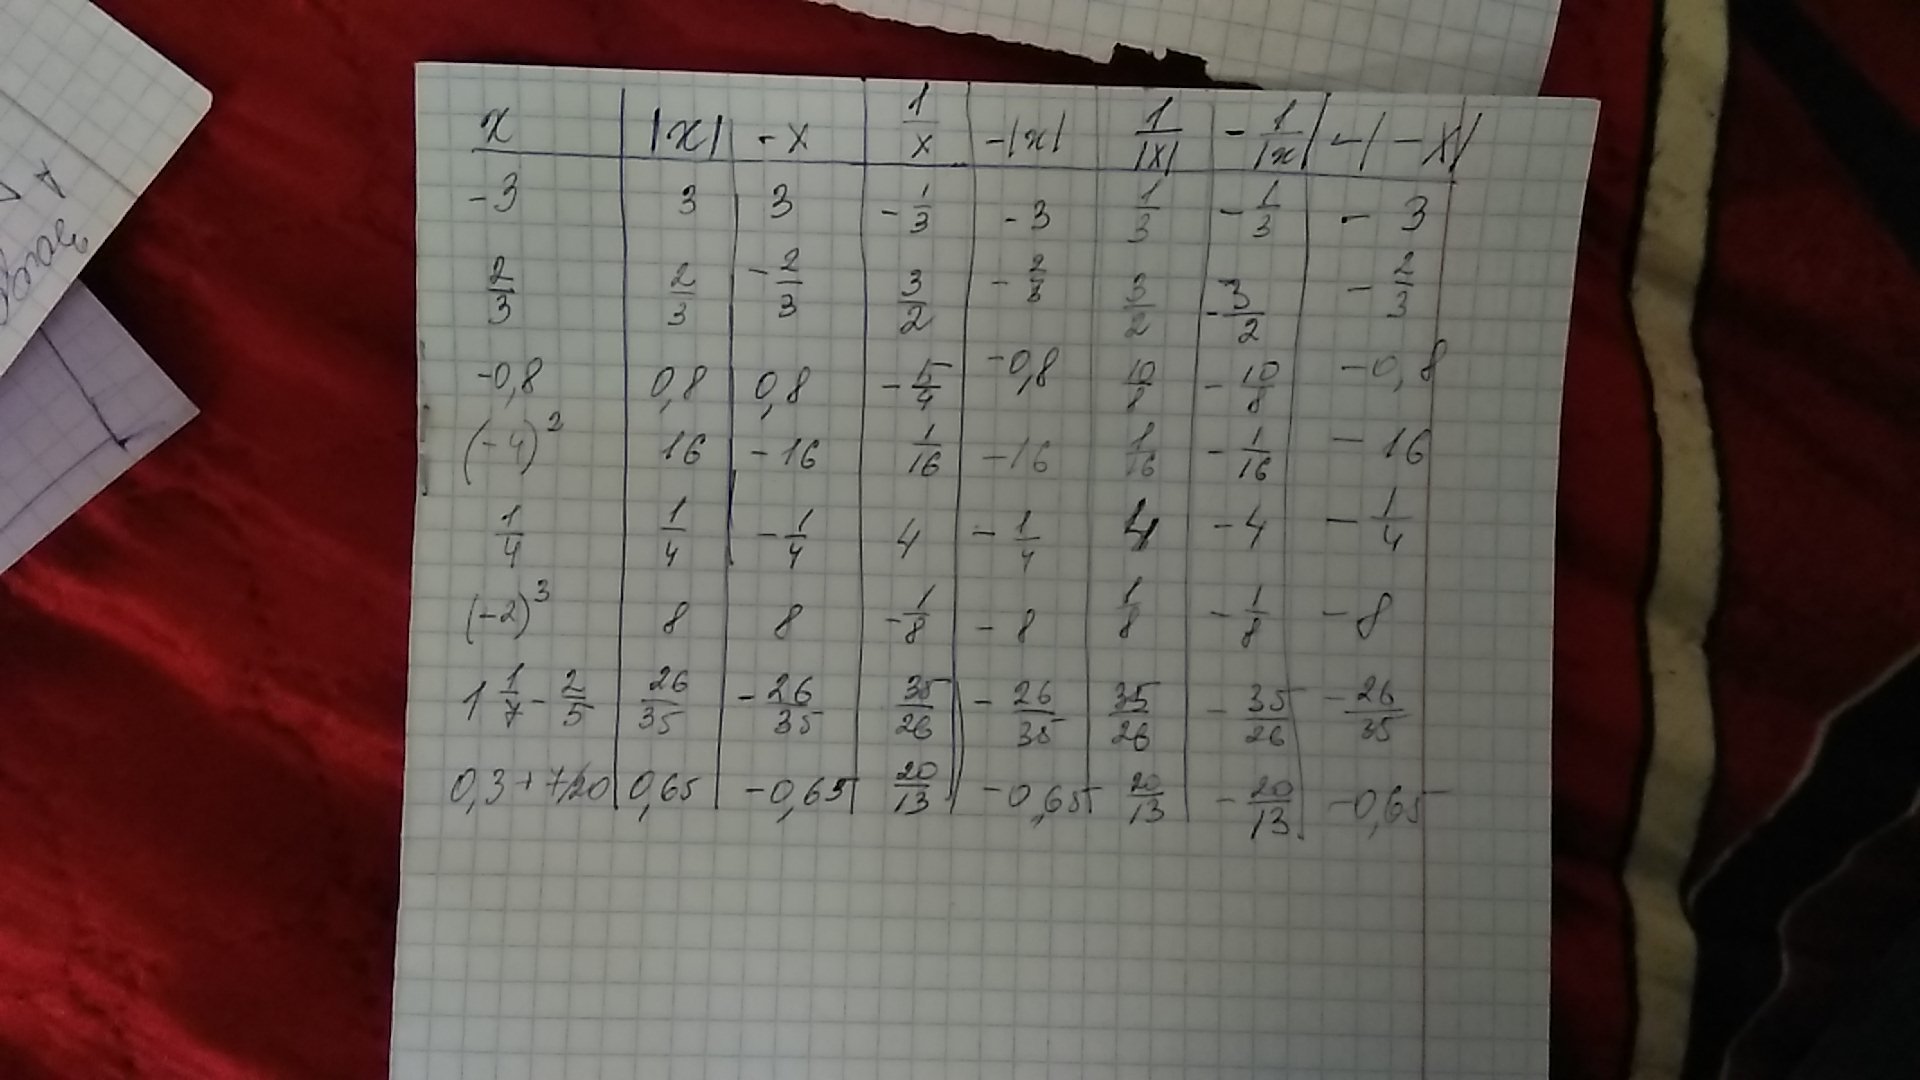 x |x| -x 1/x -|x| 1/|x| -1/|x| -|-x|
-3 3 3 -1/3 -3 1/3 -1/3 -3
2/3 2/3 -2/3 3/2 -2/3 3/2 -3/2 -2/3
-0,8 0,8 0,8 -5/4 -0,8 10/8 -10/8 -0,8
(-4)² 16 -16 1/16 -16 1/16 -1/16 -16
1/4 1/4 -1/4 4 -1/4 4 -4 -1/4
(-2)³ 8 8 -1/8 -8 1/8 -1/8 -8
1 1/7 - 2/5 26/35 -26/35 35/26 -26/35 35/26 -35/26 -26/35
0,3+7/20 0,65 -0,65 20/13 -0,65 20/13 -20/13 -0,65